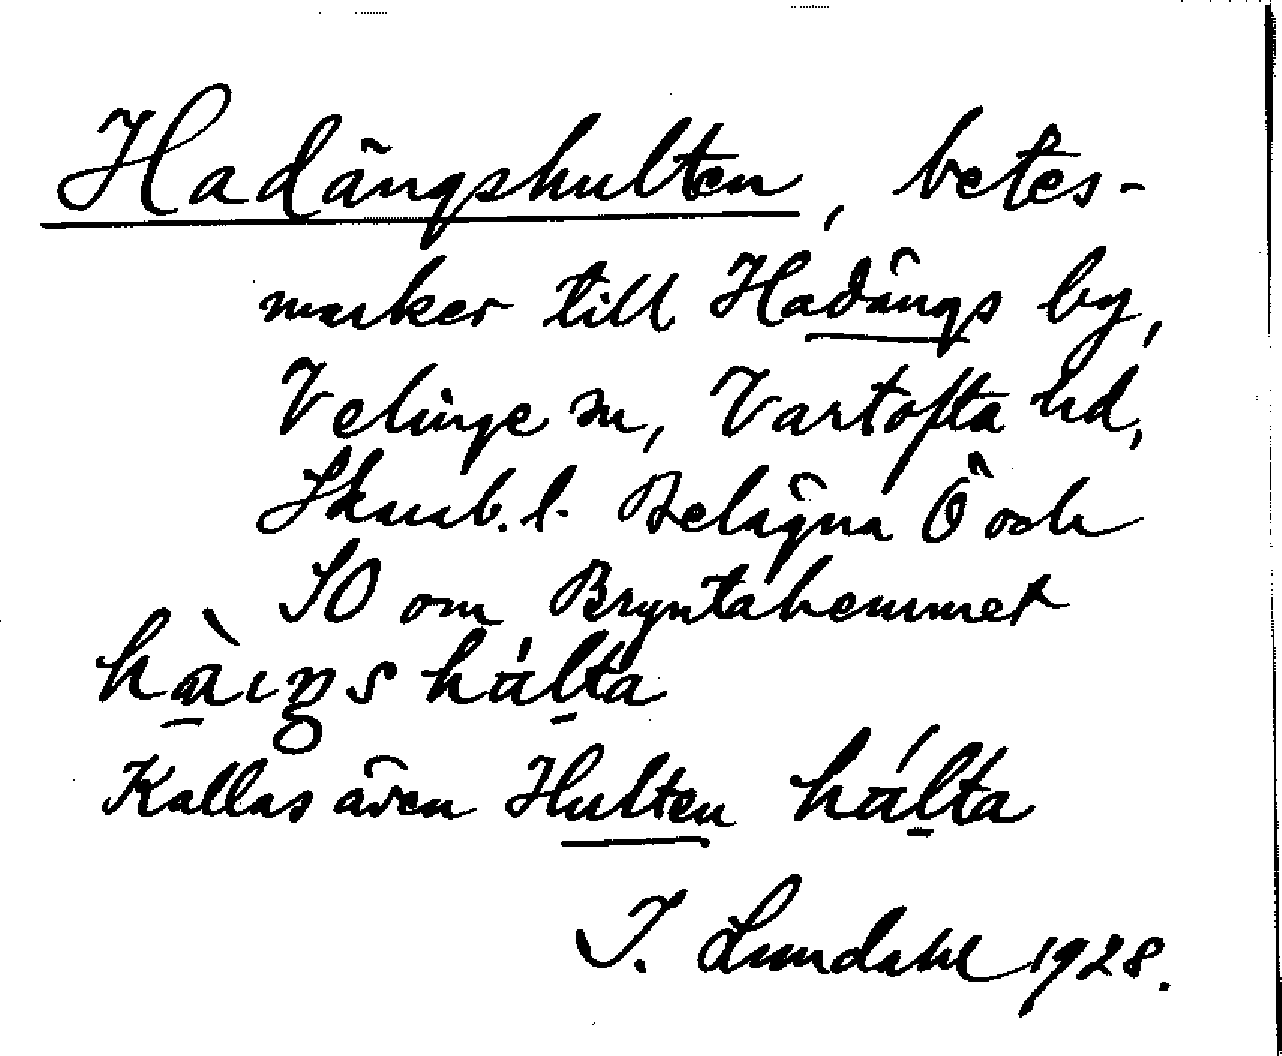 Hadängshulten, betes-
marker till Hadängs by,
Velinge sn, Vartofta hd,
Skarab. l. Belägna Ö och
SO om Bryntahemmet
hulta
Kallas även Hulten hulta
I. Lundahl 1928.